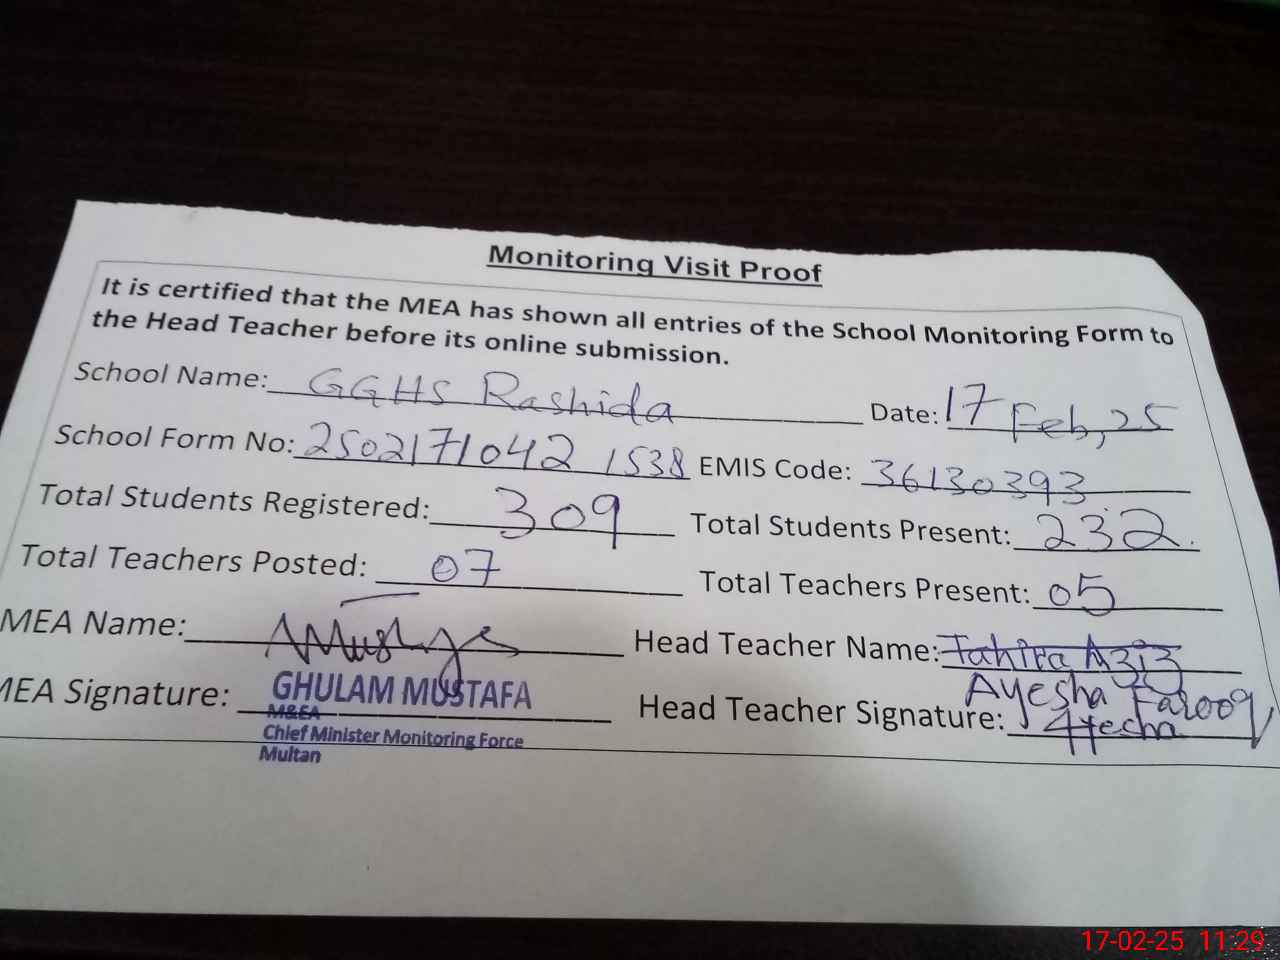 Monitoring Visit Proof
It is certified that the MEA has shown all entries of the School Monitoring Form to
the Head Teacher before its online submission.
School Name: GGHS Rashida Date: 17 Feb, 25
School Form No: 2502171042 1538 EMIS Code: 36130393
Total Students Registered: 309 Total Students Present: 232.
Total Teachers Posted: 07 Total Teachers Present: 05
MEA Name: Head Teacher Name: Tahira Aziz
Ayesha Farooq
MEA Signature: GHULAM MUSTAFA Head Teacher Signature: Ayecha
M&EA
Chief Minister Monitoring Force
Multan
17-02-25 11:29